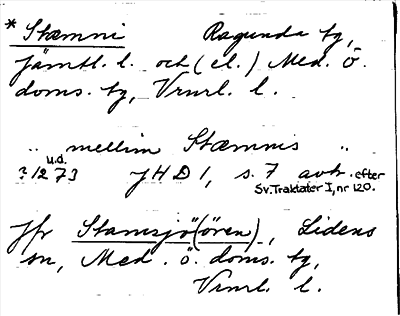 * Stæmni Ragunda tg,
Jämtl. l. och (el.) Med. ö.
doms. tg, Vrnrl. l.
" mellim Stæmnis "
u.d.
? 1273 JHD 1, s. 7 avtr. efter
Sv. Traktater I, nr 120.
Jfr Stamsjö(ören), Lidens
sn, Med. ö. doms. tg,
Vrnrl. l.